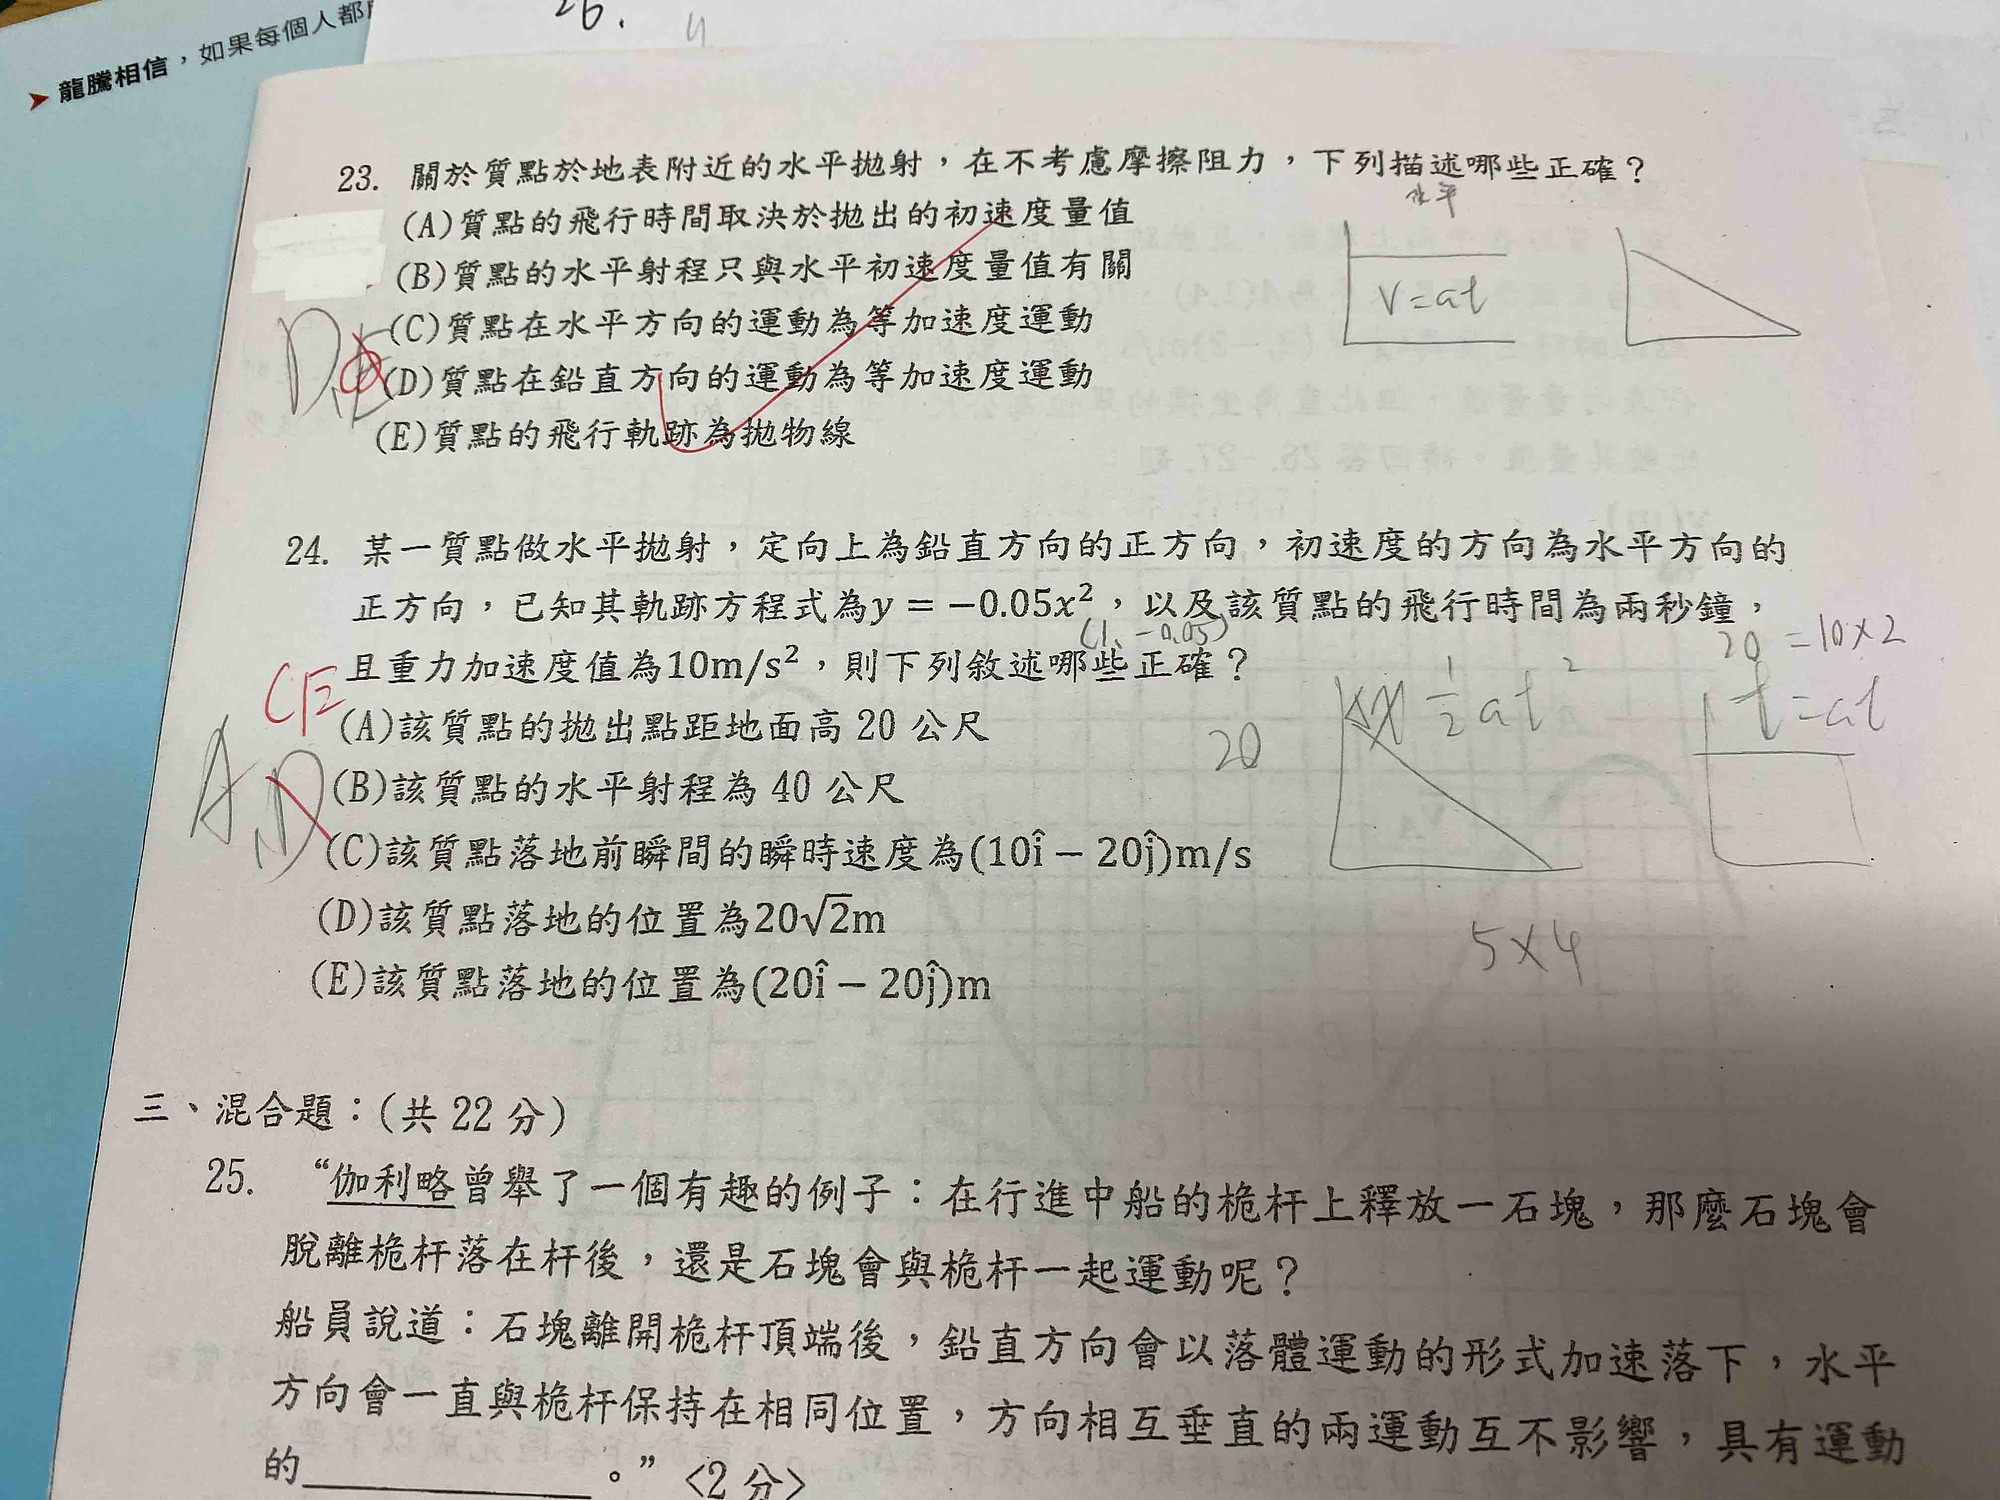 ➤ 龍騰相信，如果每個人都
26.
23. 關於質點於地表附近的水平拋射，在不考慮摩擦阻力，下列描述哪些正確？
水平
(A)質點的飛行時間取決於拋出的初速度量值
(B)質點的水平射程只與水平初速度量值有關
V=at
(C)質點在水平方向的運動為等加速度運動
D,E
(D)質點在鉛直方向的運動為等加速度運動
(E)質點的飛行軌跡為拋物線
24. 某一質點做水平拋射，定向上為鉛直方向的正方向，初速度的方向為水平方向的
正方向，已知其軌跡方程式為y = −0.05x²，以及該質點的飛行時間為兩秒鐘，
(1, -0.05)
20 =10×2
且重力加速度值為10m/s²，則下列敘述哪些正確？
CE
(A)該質點的拋出點距地面高 20 公尺
20
½at²
t=at
A,D
(B)該質點的水平射程為 40 公尺
(C)該質點落地前瞬間的瞬時速度為(10î − 20ĵ)m/s
(D)該質點落地的位置為20√2m
5×4
(E)該質點落地的位置為(20î − 20ĵ)m
三、混合題：(共 22 分)
25. “伽利略曾舉了一個有趣的例子：在行進中船的桅杆上釋放一石塊，那麼石塊會
脫離桅杆落在杆後，還是石塊會與桅杆一起運動呢？
船員說道：石塊離開桅杆頂端後，鉛直方向會以落體運動的形式加速落下，水平
方向會一直與桅杆保持在相同位置，方向相互垂直的兩運動互不影響，具有運動
的____________。” <2 分>